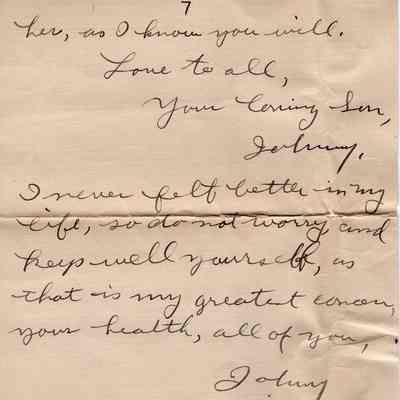 7
her, as I know you will.
Love to all,
Your loving Son,
Johnny.
I never felt better in my
life, so do not worry and
keep well yourself, as
that is my greatest concern,
your health, all of you,
Johnny